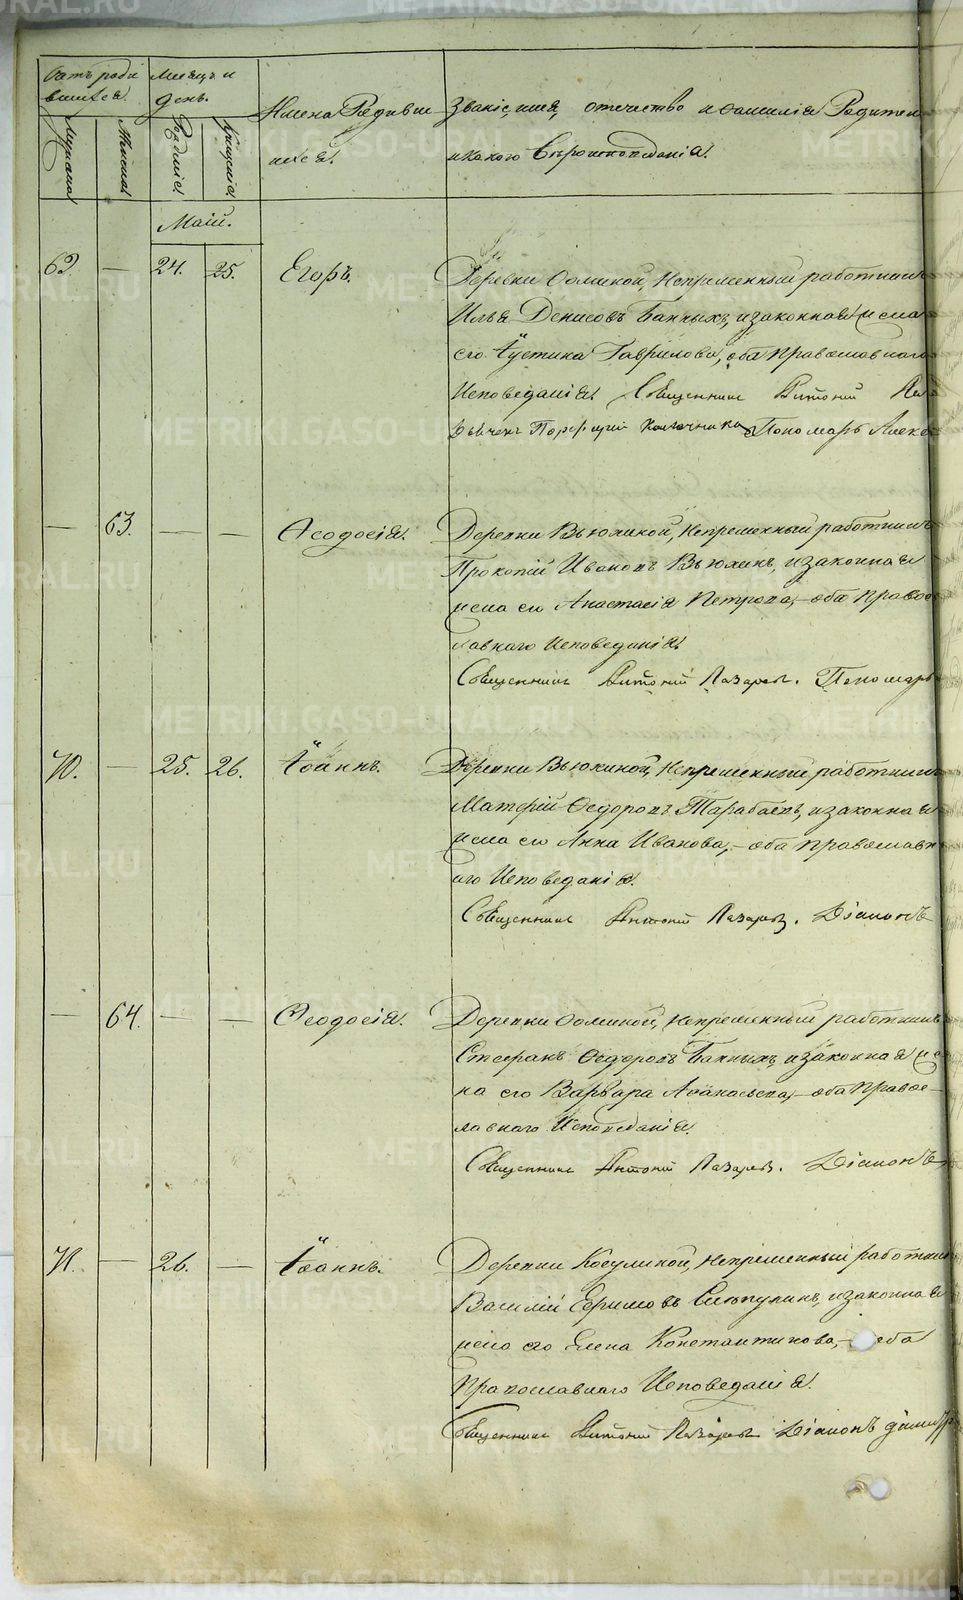 Счетъ роди
вшихся.
Мѣсяцъ и
день.
Имена Родивш
ихся.
Званіе, имя, отечество и фамилія Родител
и какого Вѣроисповѣданія.
Мужеска
Женска
Рожденія
Крещенія
Маій.
69. — 24. 25. Егоръ.
Деревни Фоминой, Непременный работникъ
Илья Денисовъ Банныхъ, и законная жена
его Іустина Гаврилова, оба Православнаго
Исповеданія. Священникъ Антоній Ла
Дьячекъ Порфирій Пономарь Алекс
— 63. — — Ѳеодосія.
Деревни Вьюхиной, Непременный работникъ
Прокопій Ивановъ Вьюхинъ, и законная
жена его Анастасія Петрова, — оба Правос
лавнаго Исповеданія.
Священникъ Антоній Лазаревъ. Пономарь
70. — 25. 26. Іоаннъ.
Деревни Вьюхиной, Непременный работникъ
Матфей Ѳедоровъ Тарабаевъ, и законная
жена его Анна Иванова, — оба Православн
аго Исповеданія.
Священникъ Антоній Лазаревъ. Діаконъ
— 64. — — Ѳеодосія.
Деревни Фоминой, Непременный работникъ
Стефанъ Ѳедоровъ Банныхъ, и законная же
на его Варвара Афанасьева, — оба Правос
лавнаго Исповеданія.
Священникъ Антоній Лазаревъ. Діаконъ
71. — 26. — Іоаннъ.
Деревни Косулиной, Непременный работник
Василій Ефимовъ и законная
жена его Елена Константинова, — оба
Православнаго Исповеданія.
Священникъ Антоній Лазаревъ Діаконъ Димитр
METRIKI.GASO-URAL.RU